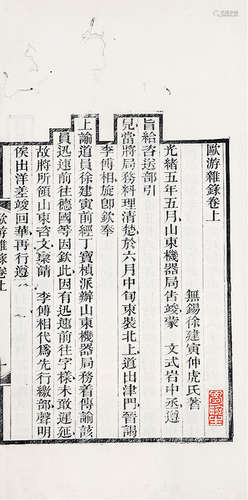 歐游雜錄卷上
無錫徐建寅仲虎氏著
光緒五年五月山東機器局告竣蒙 文式岩中丞遵
旨給咨送部引
見當將局務料理清楚於六月中旬束裝北上道出津門晉謁
李傅相旋卽欽奉
上諭道員徐建寅前經丁寶楨派辦山東機器局務着傳諭該
員迅速前往德國等因欽此因有迅速前往字樣未敢遲延
故將所領山東咨文稟請 李傅相代為先行繳部聲明
俟出洋差竣回華再行遵
歐游雜錄卷上